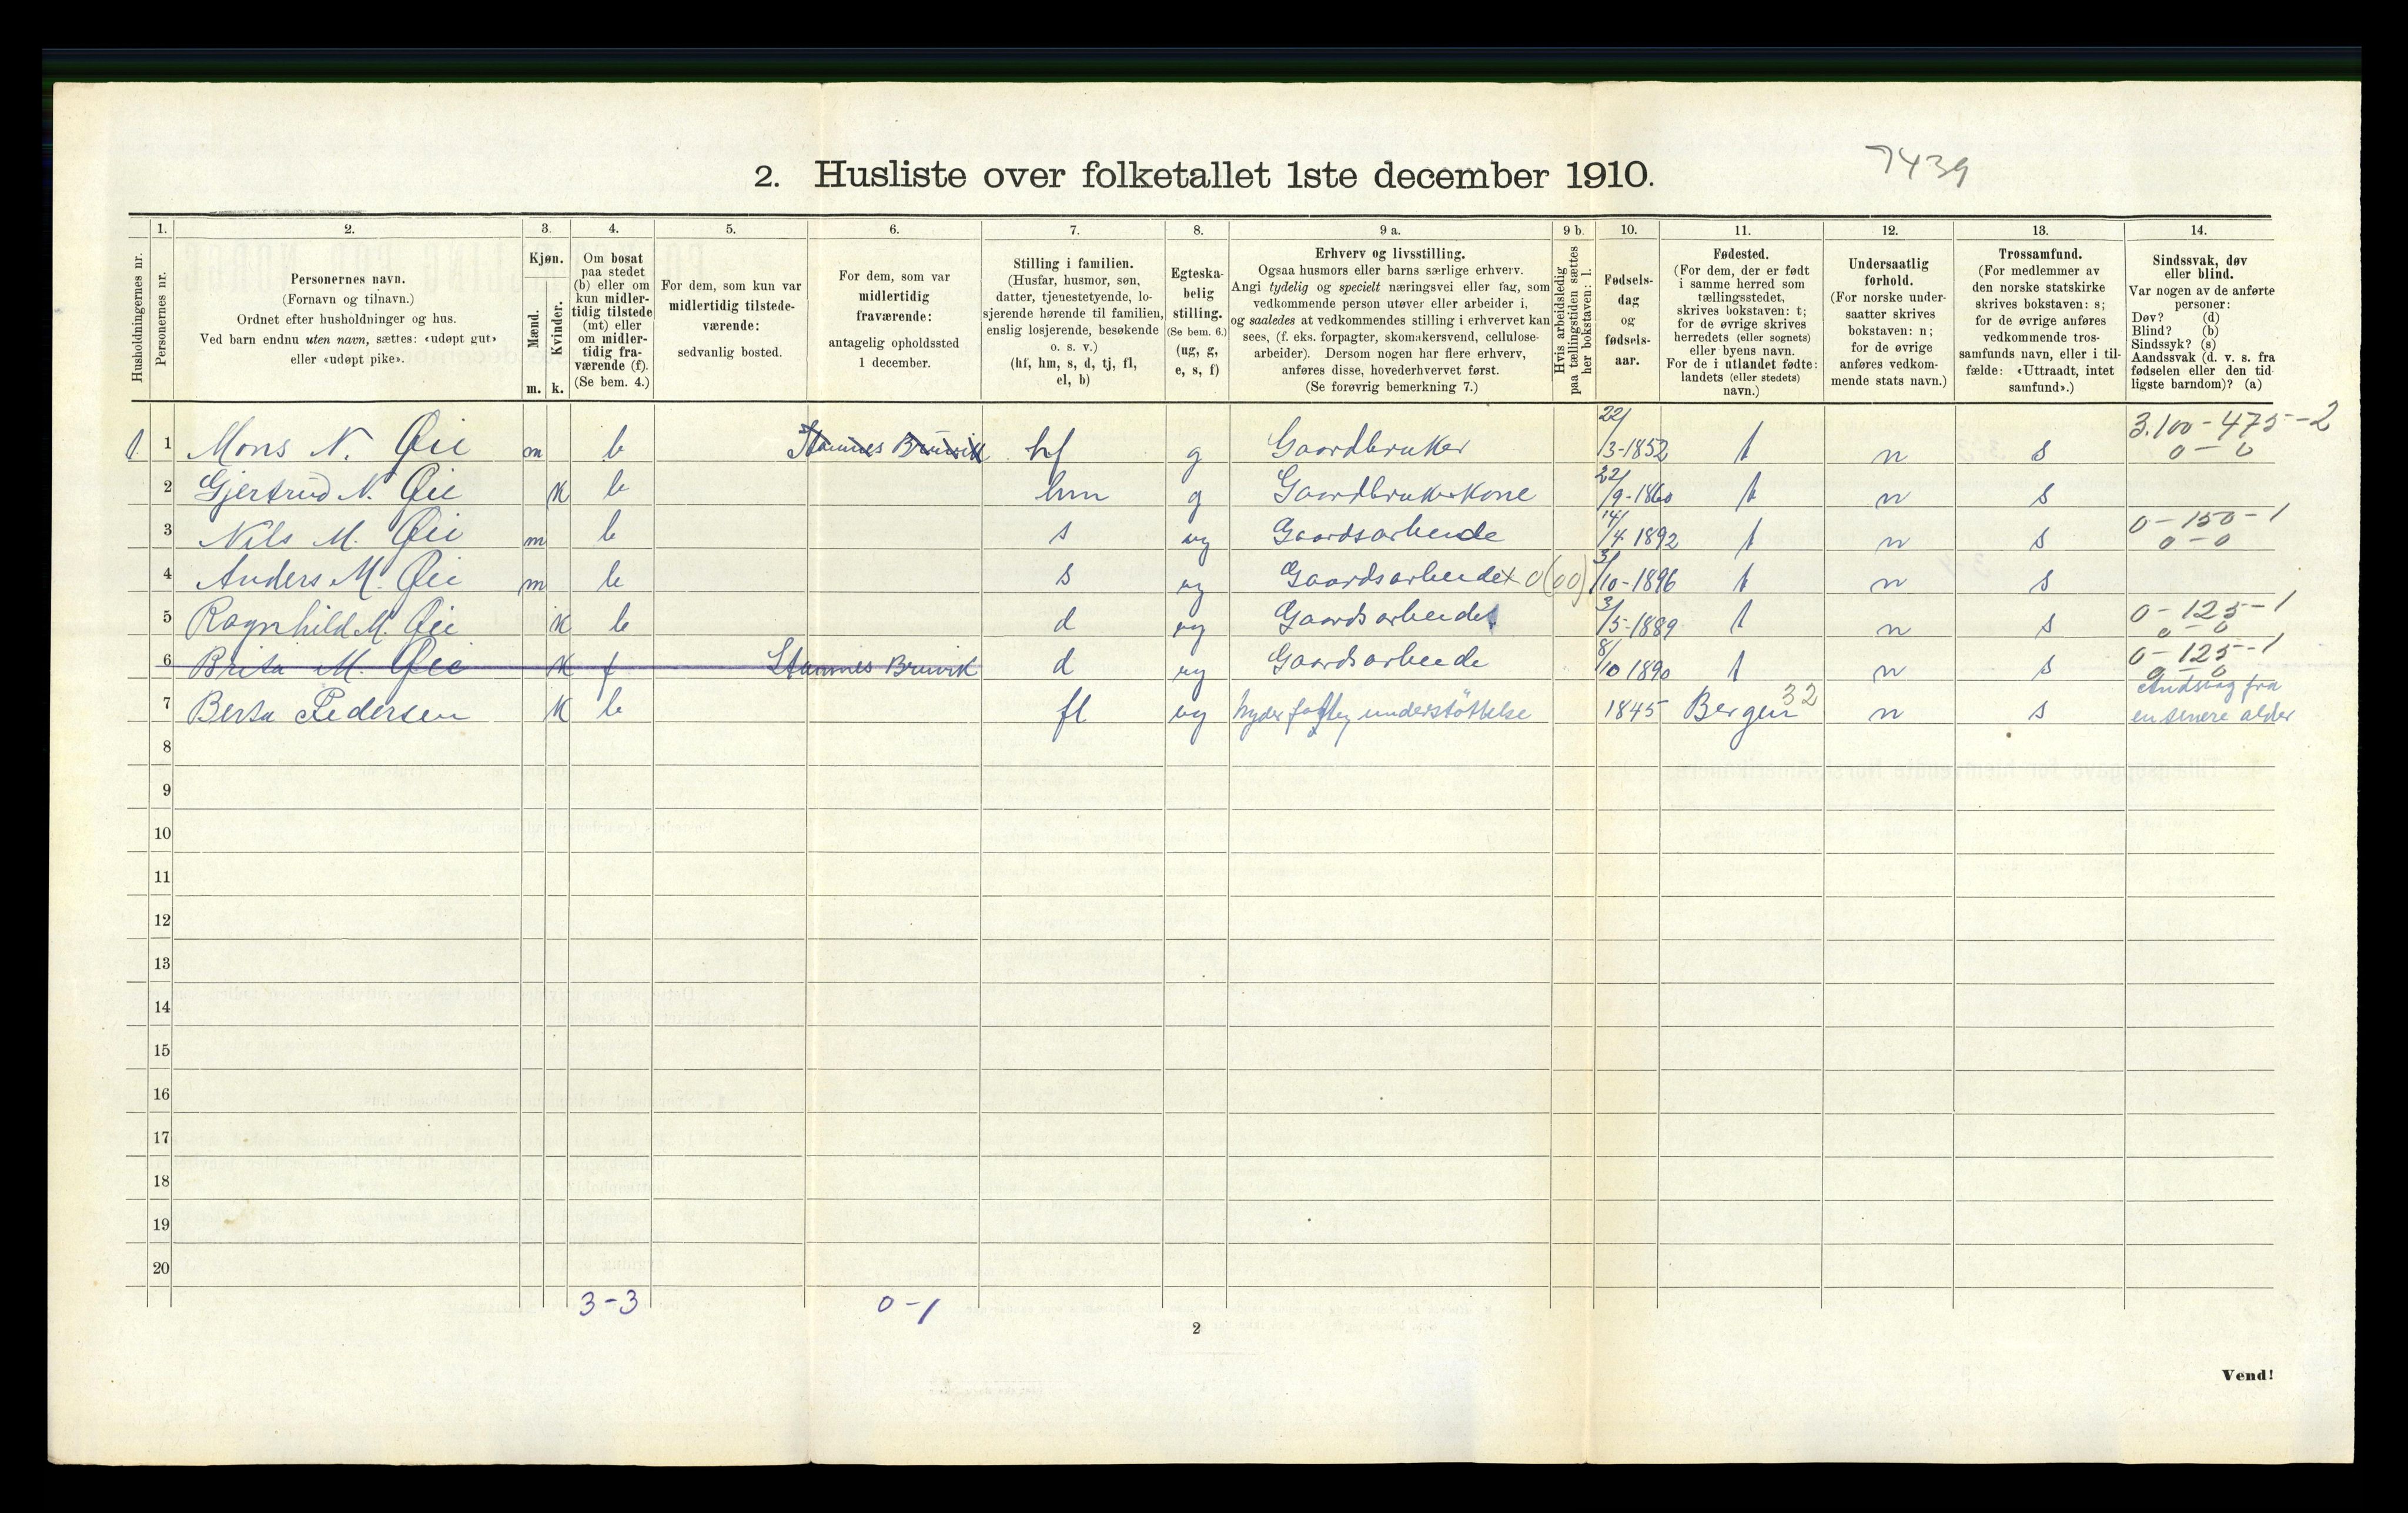 7439
2. Husliste over folketallet 1ste december 1910.
Husholdningernes nr.
1.
Personernes nr.
2.
Personernes navn.
(Fornavn og tilnavn.)
Ordnet efter husholdninger og hus.
Ved barn endnu uten navn, sættes: «udøpt gut»
eller «udøpt pike».
3.
Kjøn.
Mænd.
Kvinder.
m. k.
4.
Om bosat
paa stedet
(b) eller om
kun midler-
tidig tilstede
(mt) eller
om midler-
tidig fra-
værende (f).
(Se bem. 4.)
5.
For dem, som kun var
midlertidig tilstede-
værende:
sedvanlig bosted.
6.
For dem, som var
midlertidig
fraværende:
antagelig opholdssted
1 december.
7.
Stilling i familien.
(Husfar, husmor, søn,
datter, tjenestetyende, lo-
sjerende hørende til familien,
enslig losjerende, besøkende
o. s. v.)
(hf, hm, s, d, tj, fl,
el, b)
8.
Egteska-
belig
stilling.
(Se bem. 6.)
(ug, g,
e, s, f)
9 a.
Erhverv og livsstilling.
Ogsaa husmors eller barns særlige erhverv.
Angi tydelig og specielt næringsvei eller fag, som
vedkommende person utøver eller arbeider i,
og saaledes at vedkommendes stilling i erhvervet kan
sees, (f. eks. forpagter, skomakersvend, cellulose-
arbeider). Dersom nogen har flere erhverv,
anføres disse, hovederhvervet først.
(Se forøvrig bemerkning 7.)
9 b.
Hvis arbeidsledig
paa tællingstiden sættes
her bokstaven: l.
10.
Fødsels-
dag
og
fødsels-
aar.
11.
Fødested.
(For dem, der er født
i samme herred som
tællingsstedet,
skrives bokstaven: t;
for de øvrige skrives
herredets (eller sognets)
eller byens navn.
For de i utlandet fødte:
landets (eller stedets)
navn.)
12.
Undersaatlig
forhold.
(For norske under-
saatter skrives
bokstaven: n;
for de øvrige
anføres vedkom-
mende stats navn.)
13.
Trossamfund.
(For medlemmer av
den norske statskirke
skrives bokstaven: s;
for de øvrige anføres
vedkommende tros-
samfunds navn, eller i til-
fælde: «Uttraadt, intet
samfund».)
14.
Sindssvak, døv
eller blind.
Var nogen av de anførte
personer:
Døv? (d)
Blind? (b)
Sindssyk? (s)
Aandssvak (d. v. s. fra
fødselen eller den tid-
ligste barndom)? (a)
1. 1 Mons N. Øie m b Stamnes Bruvik hf g Gaardbruker 22/3-1852 t n s 3.100-475-2 0-0
2 Gjertrud N. Øie k b hm g Gaardbrukerkone 22/9-1860 t n s
3 Nils M. Øie m b s ug Gaardsarbeide 14/4 1892 t n s 0-150-1 0-0
4 Anders M. Øie m b s ug Gaardsarbeide x 0(60) 3/10-1896 t n s
5 Ragnhild M. Øie k b d ug Gaardsarbeide 3/5-1889 t n s 0-125-1 0-0
6 Brita M. Øie k f Stamnes Bruvik d ug Gaardsarbeide 8/10 1890 t n s 0-125-1 0-0
7 Berta Pedersen k b fl ug understöttelse 1845 Bergen 32 n s fra en senere alder
8
9
10
11
12
13
14
15
16
17
18
19
20
3-3 0-1
2
Vend!